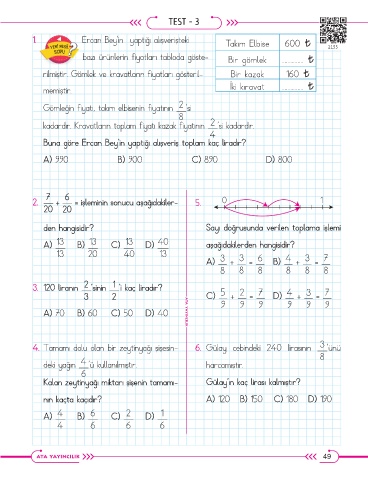 TEST - 3
2135
1. YENİ NESİL SORU Ercan Bey'in yaptığı alışverişteki
bazı ürünlerin fiyatları tabloda göste-
rilmiştir. Gömlek ve kravatların fiyatları gösteril-
memiştir.
Takım Elbise 600 ₺
Bir gömlek ............ ₺
Bir kazak 160 ₺
İki kravat ............ ₺
Gömleğin fiyatı, takım elbisenin fiyatının 2/8 'si
kadardır. Kravatların toplam fiyatı kazak fiyatının 2/4 'si kadardır.
Buna göre Ercan Bey'in yaptığı alışveriş toplam kaç liradır?
A) 990 B) 900 C) 890 D) 800
2. 7/20 + 6/20 = işleminin sonucu aşağıdakiler-
den hangisidir?
A) 13/13 B) 13/20 C) 13/40 D) 40/13
3. 120 liranın 2/3 'sinin 1/2 'i kaç liradır?
A) 70 B) 60 C) 50 D) 40
4. Tamamı dolu olan bir zeytinyağı şişesin-
deki yağın 4/6 'ü kullanılmıştır.
Kalan zeytinyağı miktarı şişenin tamamı-
nın kaçta kaçıdır?
A) 4/4 B) 6/6 C) 2/6 D) 1/6
5. 0 1
Sayı doğrusunda verilen toplama işlemi
aşağıdakilerden hangisidir?
A) 3/8 + 3/8 = 6/8 B) 4/8 + 3/8 = 7/8
C) 5/9 + 2/9 = 7/9 D) 4/9 + 3/9 = 7/9
6. Gülay cebindeki 240 lirasının 3/8 'ünü
harcamıştır.
Gülay'ın kaç lirası kalmıştır?
A) 120 B) 150 C) 180 D) 190
ATA YAYINCILIK
49